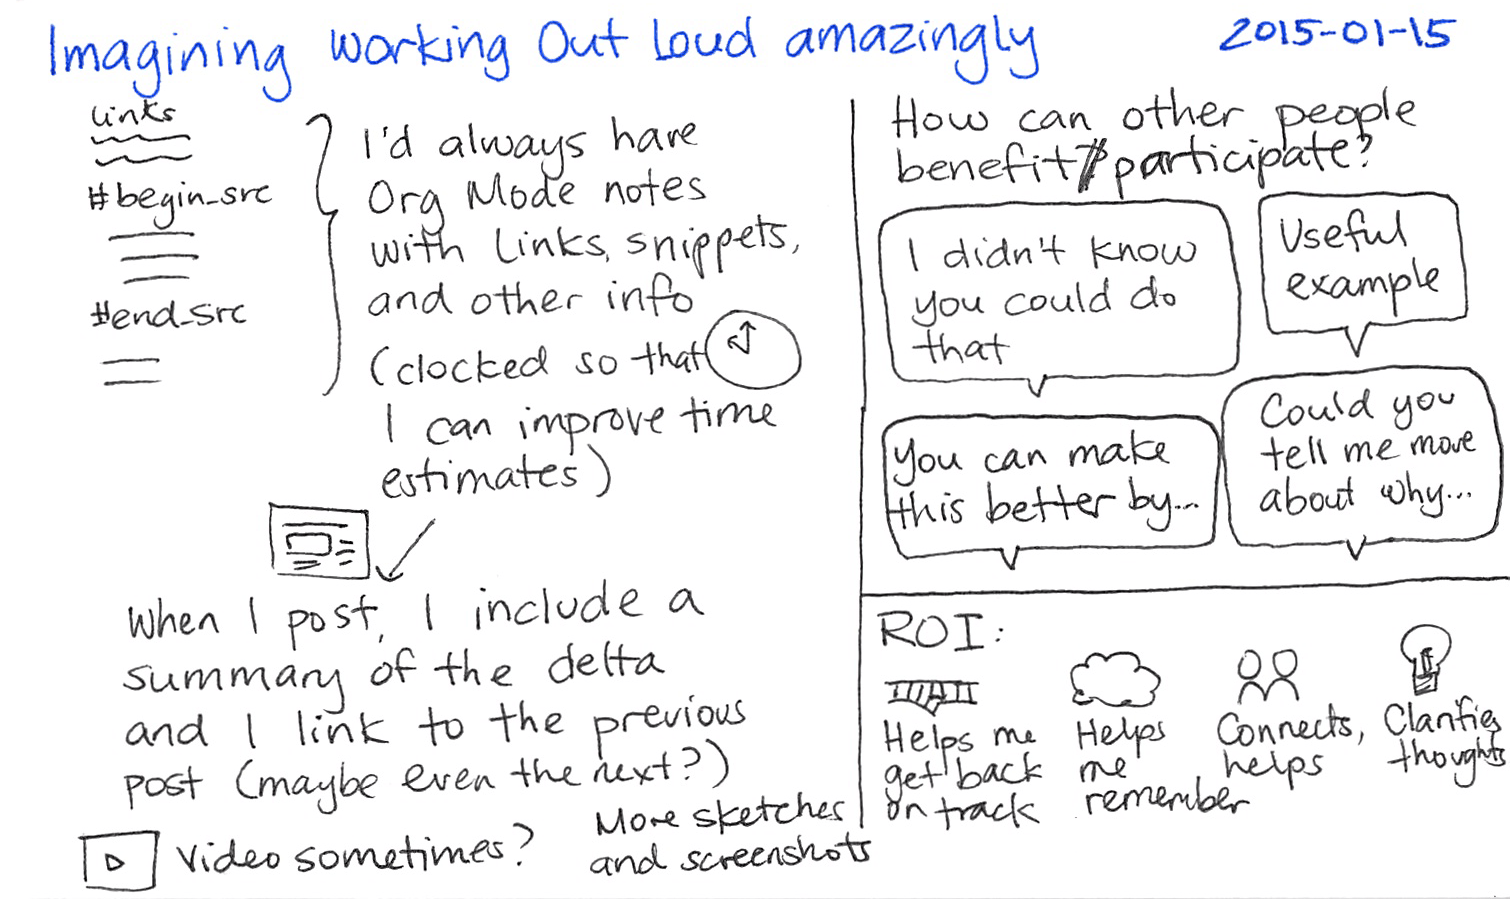 Imagining working Out Loud amazingly
2015-01-15
Links
#begin_src
#end_src
I'd always have
Org Mode notes
with links, snippets,
and other info
(clocked so that
I can improve time
estimates)
When I post, I include a
summary of the delta
and I link to the previous
post (maybe even the next?)
video sometimes?
More sketches
and screenshots
How can other people
benefit/participate?
I didn't know
you could do
that
Useful
example
You can make
this better by...
Could you
tell me more
about why...
ROI:
Helps me
get back
on track
Helps
me
remember
Connects,
helps
Clarifies
thoughts